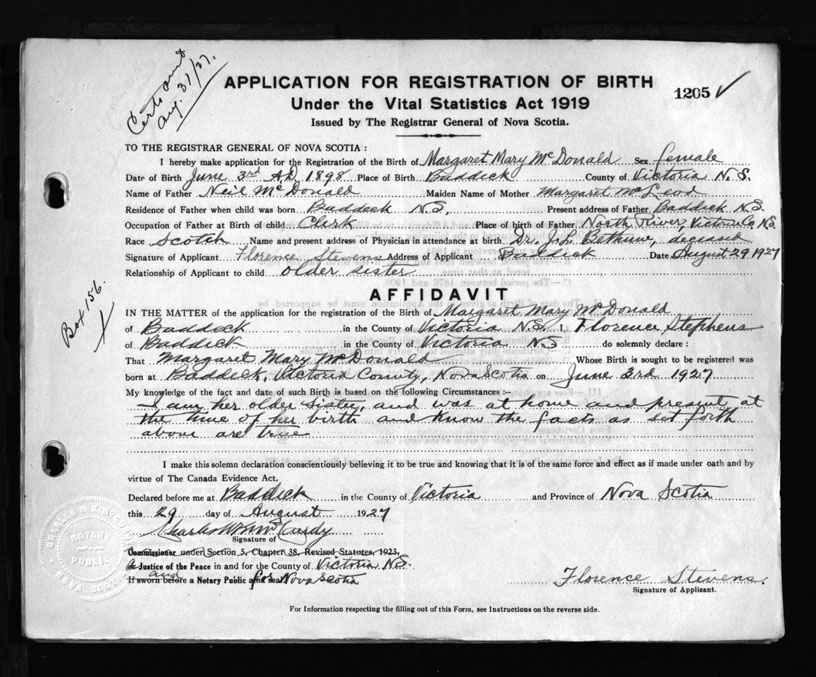 Certs sent
Aug. 31/27.
APPLICATION FOR REGISTRATION OF BIRTH
Under the Vital Statistics Act 1919
1205 ✓
Issued by The Registrar General of Nova Scotia.
TO THE REGISTRAR GENERAL OF NOVA SCOTIA :
I hereby make application for the Registration of the Birth of Margaret Mary McDonald Sex female
Date of Birth June 3rd A.D. 1898 Place of Birth Baddeck County of Victoria N.S.
Name of Father Neil McDonald Maiden Name of Mother Margaret McLeod
Residence of Father when child was born Baddeck N.S. Present address of Father Baddeck N.S.
Occupation of Father at Birth of child Clerk Place of birth of Father North River, Victoria Co, N.S.
Race Scotch Name and present address of Physician in attendance at birth Dr. J.L. Bethune, deceased
Signature of Applicant Florence Stevens Address of Applicant Baddeck Date August 29 1927
Relationship of Applicant to child older sister
Box 156.
AFFIDAVIT
IN THE MATTER of the application for the registration of the Birth of Margaret Mary McDonald
of Baddeck in the County of Victoria N.S. I, Florence Stephens
of Baddeck in the County of Victoria N S do solemnly declare :
That Margaret Mary McDonald Whose Birth is sought to be registered was
born at Baddeck, Victoria County, Nova Scotia on June 3rd 1927
My knowledge of the fact and date of such Birth is based on the following Circumstances :-
I am her older sister, and was at home and present at
the time of her birth and know the facts as set forth
above are true
I make this solemn declaration conscientiously believing it to be true and knowing that it is of the same force and effect as if made under oath and by
virtue of The Canada Evidence Act.
Declared before me at Baddeck in the County of Victoria and Province of Nova Scotia
this 29 day of August 1927
Signature of
Commissioner under Section 5, Chapter 38, Revised Statutes, 1923,
a Justice of the Peace in and for the County of Victoria N.S.
If sworn before a Notary Public and for Nova Scotia
NOTARY
PUBLIC
NOVA SCOTIA
Florence Stevens.
Signature of Applicant.
For Information respecting the filling out of this Form, see Instructions on the reverse side.